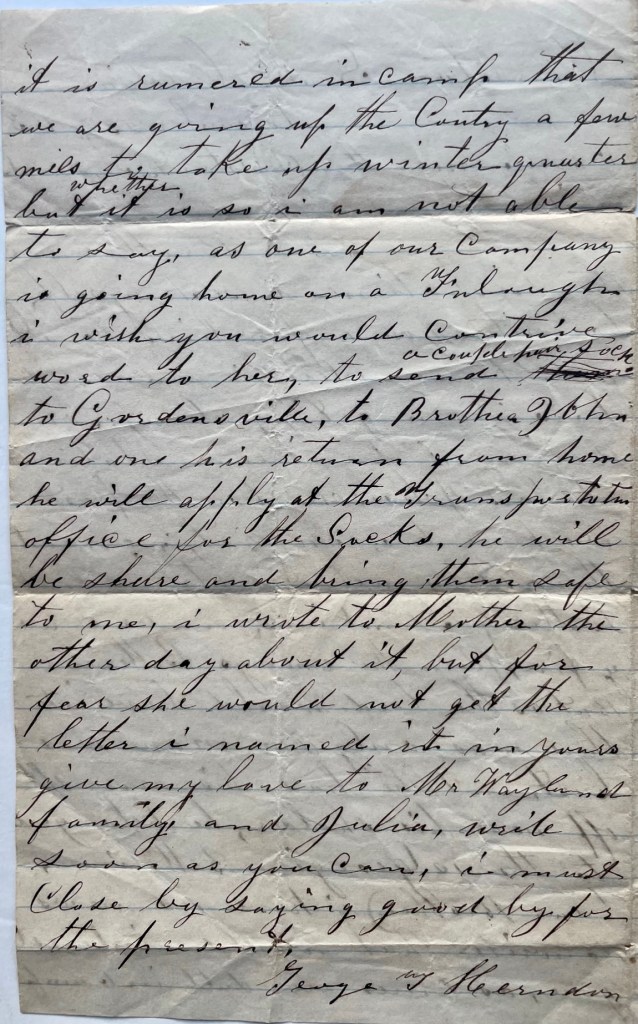 it is rumered in camp that
we are going up the Contry a few
mils to take up winter quarter
whether
but it is so i am not able
to say, as one of our Company
is going home on a Furlough
i wish you would Contrive
a couple pair Sock
word to her, to send
to Gordensville, to Brother John
and one his return from home
he will apply at the Transportatin
office for the Socks, he will
be shure and bring them safe
to me, i wrote to Mother the
other day about it, but for
fear she would not get the
letter i named it in yours
give my love to Mr Wayland
family and Julia, write
soon as you Can, i must
Close by saying good by for
the present,
George W Herndon